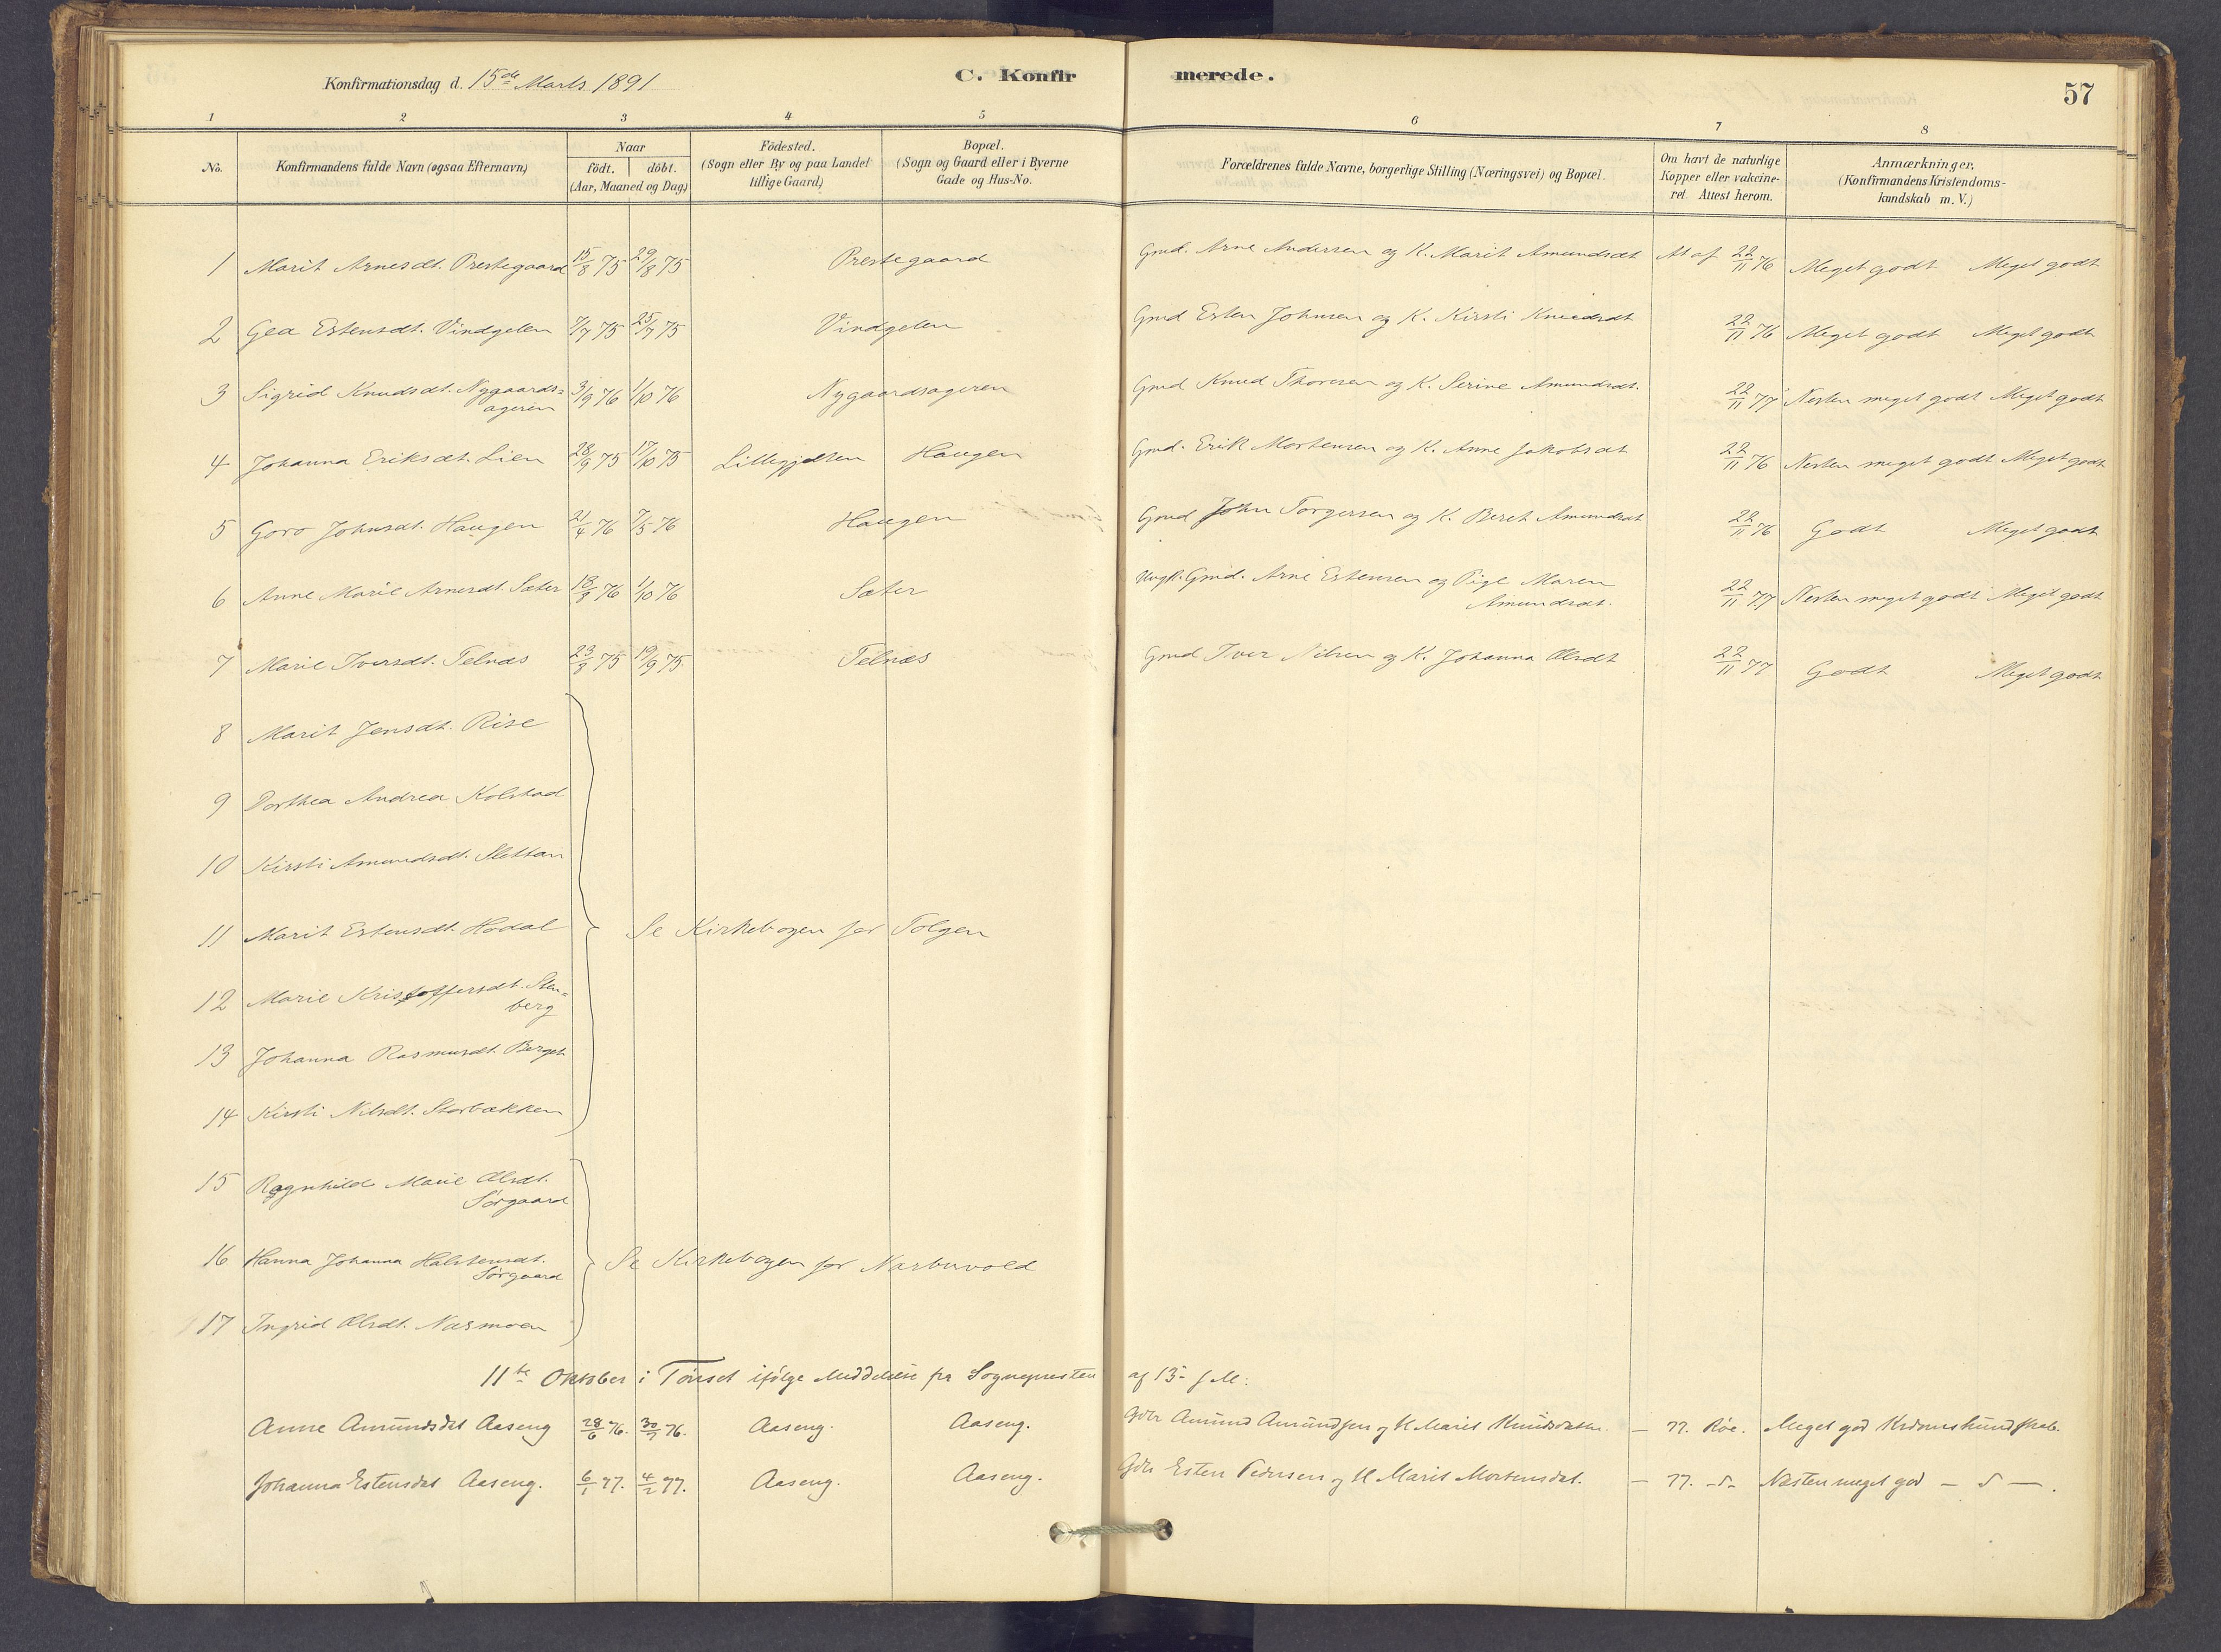 Konfirmationsdag d. 15de Marts 1891 C. Konfirmerede. 57
1 2 3 4 5 6 7 8
No. Konfirmandens fulde Navn (ogsaa Efternavn) Naar födt. döbt. (Aar, Maaned og Dag) Födested. (Sogn eller By og paa Landet tillige Gaard) Bopæl. (Sogn og Gaard eller i Byerne Gade og Hus-No. Forældrenes fulde Navne, borgerlige Stilling (Næringsvei) og Bopæl. Om havt de naturlige Kopper eller vakcineret. Attest herom. Anmærkninger, (Konfirmandens Kristendomskundskab m. V.)
1 Marit Arnesdt. Prestegaard 15/8 75 29/8 75 Prestegaard Gmd. Arne Andersen og K. Marit Amundsdt At af 22/11 76 Meget godt Meget godt
2 Gea Estensdt. Vindgelen 7/7 75 25/7 75 Vindgelen Gmd Esten Johnsen og K. Kirsti Knudsdt 22/11 76 Meget godt Meget godt
3 Sigrid Knudsdt. Nygaards=
ageren 3/9 76 1/10 76 Nygaardsageren Gmd Knud Thoresen og K. Serine Amundsdt. 22/11 77 Nesten meget godt Meget godt
4 Johanna Eriksdt. Lien 28/9 75 17/10 75 Lillegjelten Haugen Gmd. Erik Mortensen og K. Anne Jakobsdt 22/11 76 Nesten meget godt Meget godt
5 Goro Johnsdt. Haugen 21/4 76 7/5 76 Haugen Gmd John Torgersen og K. Beret Amundsdt 22/11 76 Godt Meget godt
6 Anne Marie Arnesdt. Sæter 18/8 76 1/10 76 Sæter Ungk. Gmd. Arne Estensen og Pige Maren
Amundsdt. 22/11 77 Nesten meget godt Meget godt
7 Marie Iversdt. Telnæs 23/8 75 19/9 75 Telnæs Gmd Iver Nilsen og K. Johanna Olsdt 22/11 77 Godt Meget godt
8 Marit Jensdt. Rise
9 Dorthea Andrea Kolstad
10 Kirsti Amundsdt. Slettan
11 Marit Estensdt. Hodal Se Kirkebogen for Tolgen
12 Marie Kristoffersdt. Sten=
berg
13 Johanna Rasmusdt. Berget
14 Kirsti Nilsdt. Storbækken
15 Ragnhild Marie Olsdt.
Sörgaard
16 Hanna Johanna Halstensdt.
Sörgaard Se Kirkebogen for Narbuvold
17 Ingrid Olsdt. Næsmoen
11te Oktober i Tönset ifölge Meddelelse fra Sognepresten af 13- f M:
Anne Amundsdat Aaseng 28/6 76. 30/7 76. Aaseng. Aaseng. Gdbr Amund Amundsen og H Marit Knudsdatter. — 77. Röe. Meget god Krdomskundskab.
Johanna Estensdat Aaseng. 6/1 77. 4/2 77. Aaseng. Aaseng. Gdbr Esten Pedersen og H Marit Mortensdat. — 77. -d- Næsten meget god — d —.